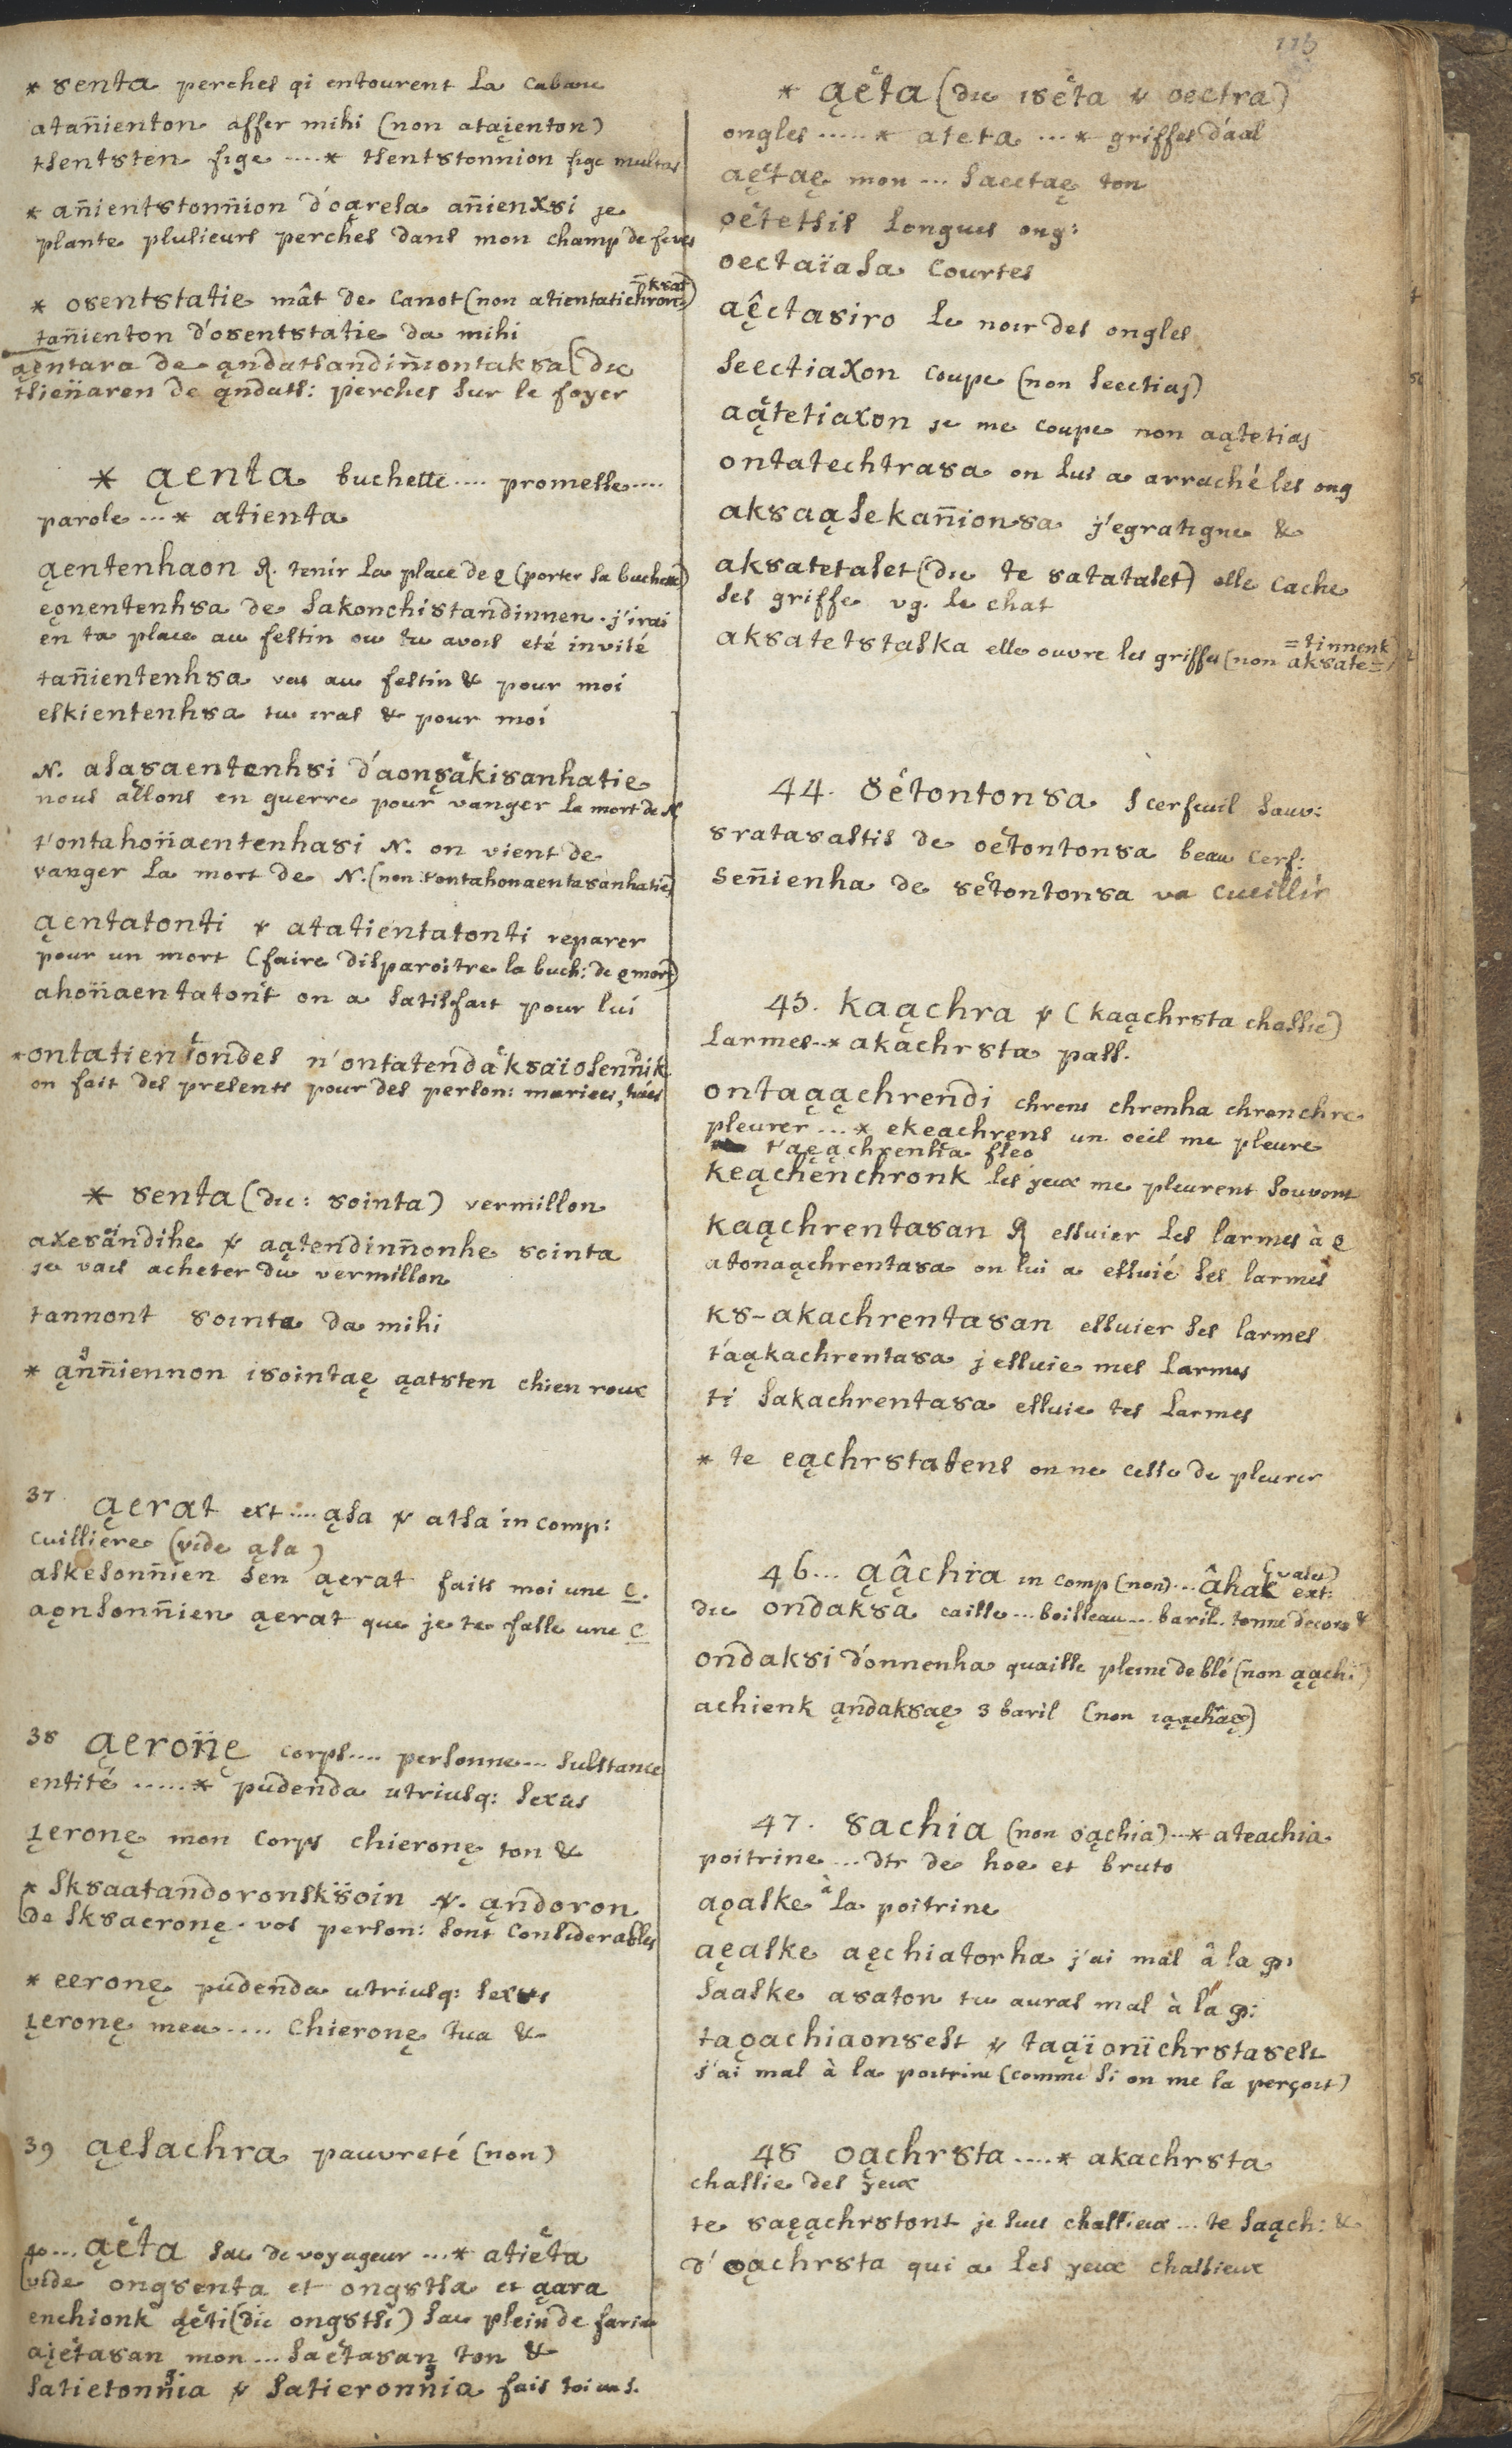 116
* 8enta perches qi entourent la cabane
atañienton affer mihi (non ataįenton)
tsent8ten fige ....* tsent8tonnion fige multas
* añient8tonñion d'oąresa añienx8i je
plante plusieurs perches dans mon champ de feves
* osent8tatie mât de canot (non atientatie
tañienton d'osent8tatie da mihi
ąentara de ąndatsandiñiontak8a (dic
tsieñaren de ąndats: perches sur le foyer
* ąenta buchette .... promesse ....
parole ...* atienta
ąentenhaon R. tenir la place de ҿ (porter sa buchette)
eǫnentenh8a de sakonchi8tandinnen. j'irai
en ta place au festin ou tu avois eté invité
tañientenh8a vas au festin & pour moi
eskientenh8a tu iras & pour moi
N. asą8aentenh8i d'aon8ąki8anhatie
nous allons en guerre pour vanger la mort de N
t'ontahoñaentenha8i N. on vient de
vanger la mort de N. (non tontahonaenta8anhatie)
ąentatonti v atatientatonti reparer
pour un mort (faire disparoitre la buch: de ҿ mort)
ahoñaentatont on a satisfait pour lui
*ontatientondes n'ontatendak8aïosennik
on fait des presents pour des person: mariees, tuées
* 8enta (dic: 8ointa) vermillon
axe8andihe v aątendinñonhe 8ointa
je vais acheter du vermillon
tannont 8ointa da mihi
* ąnñiennon i8ointaę ąat8ten chien roux
37. ąerat ext .... ąsa v atsa in comp:
cuilliere (vide ąsa)
askesonñien sen ąerat faits moi une c.
aǫnsonñien ąerat que je te fasse une c
38 ąeroñę corps .... personne ... substance
entité .....* pudenda utriusq: sexus
įeronę mon corps chieronę ton &
* sk8aatandoronsk8oin v. ąndoron
(de sk8aeronę. vos person: sont considerables
* eeronę pudenda utriusq: sexus
įeronę mea .... chieronę tua &
39 ąesachra pauvreté (non)
40 ... ąëta sac de voyageur ...* atiëta
(vide ong8enta et ong8tsa et ąara
enchionk ąëti (dic ong8tsi) sac plein de farine
aįëta8an mon ... saëta8an ton &
satietonñia v satieronñia fais toi un s.
* ąëta (dic i8ëta v oectra)
ongles .....* ateta ...* griffes d'aal
aętaę mon ... saectaę ton
oëtetsis longues ong:
oectaïasa courtes
aęctasiro le noir des ongles
seectiaxon coupe (non seectias)
aątetiaxon je me coupe non aątetias
ontatechtra8a on lui a arraché les ong
ak8aąsekañion8a j'egratigne &
ak8atetaset (dic te 8atataset) elle cache
ses griffe vg. le chat
ak8atet8taska elle ouvre les griffes (non ak8ate=
=tinnenk)
44. 8ëtonton8a s cerfeuil sauv:
8rata8astis de oëtonton8a beau cerf:
señienha de 8ëtonton8a va cueillir
45. kaąchra v (kaąchr8ta chassie)
larmes ..* akachr8ta pass.
ontaąąchrendi chrens chrenha chrenchre
pleurer ...* ekeachrens un oeil me pleure
t'aęąchrenha fleo
keąchenchronk les yeux me pleurent souvent
kaąchrenta8an R essuier les larmes à ҿ
atonaąchrenta8a on lui a essuié ses larmes
k8-akachrenta8an essuier ses larmes
t'aąkachrenta8a j'essuie mes larmes
ti sakachrenta8a essuie tes larmes
* te eąchr8tatens on ne cesse de pleurer
46 ... ąâchia in comp (non) ... âhak ext:
dic ondak8a caisse ... boisseau ... baril. tonne d'ecorce &
ondak8i d'onnenha quaisse pleine de blé (non ąąchi)
achienk ąndak8aę 3 baril (non iąąchaę)
47. 8achia (non oąchia) ..* ateachia
poitrine ... dtr de hoe et bruto
aǫaske à la poitrine
aęaske aęchiatorha j'ai mal à la p:
saaske a8aton tu auras mal à la p:
taǫachiaon8est v taąïonïchr8ta8est
j'ai mal à la poitrine (comme si on me la perçoit)
48 oąchr8ta ....* akachr8ta
chassie des yeux
te 8aęąchr8tont je suis chassieux ... te saąch: &
d'oąchr8ta qui a les yeux chassieux